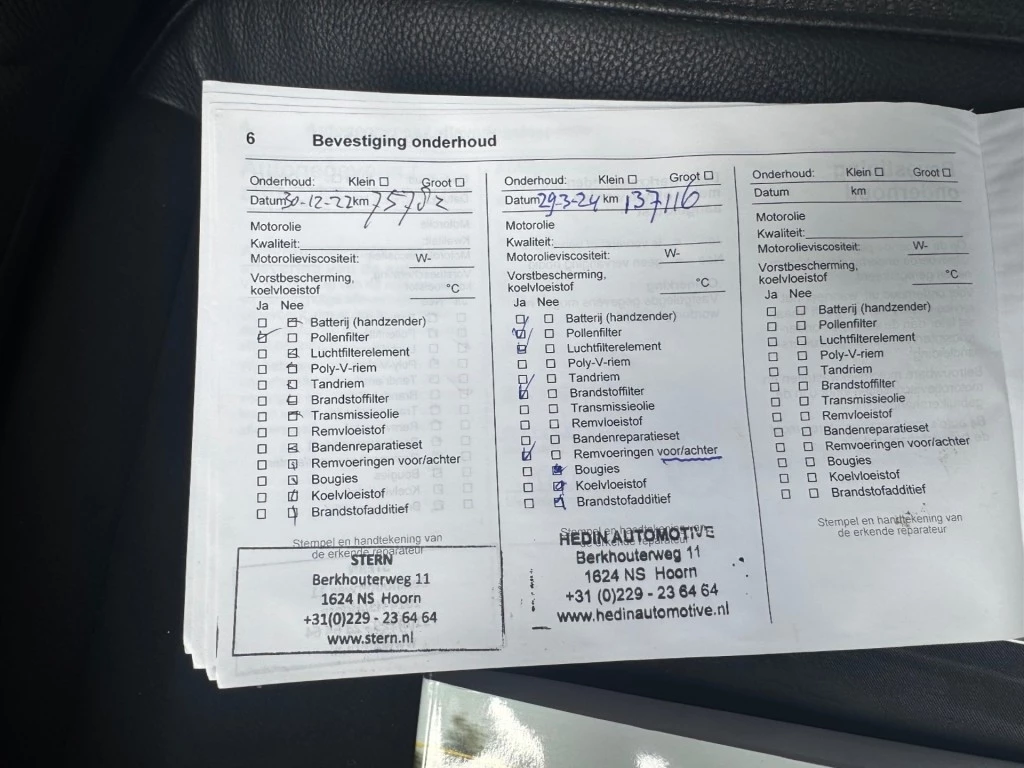 6 Bevestiging onderhoud
Onderhoud: Klein ☐ Groot ☐
Datum 30-12-22 km 75782
Motorolie
Kwaliteit:
Motorolieviscositeit: W-
Vorstbescherming,
koelvloeistof °C
Ja Nee
Batterij (handzender)
Pollenfilter
Luchtfilterelement
Poly-V-riem
Tandriem
Brandstoffilter
Transmissieolie
Remvloeistof
Bandenreparatieset
Remvoeringen voor/achter
Bougies
Koelvloeistof
Brandstofadditief
Stempel en handtekening van
de erkende reparateur
STERN
Berkhouterweg 11
1624 NS Hoorn
+31(0)229 - 23 64 64
www.stern.nl
Onderhoud: Klein ☐ Groot ☐
Datum 29-3-24 km 137116
Motorolie
Kwaliteit:
Motorolieviscositeit: W-
Vorstbescherming,
koelvloeistof °C
Ja Nee
Batterij (handzender)
Pollenfilter
Luchtfilterelement
Poly-V-riem
Tandriem
Brandstoffilter
Transmissieolie
Remvloeistof
Bandenreparatieset
Remvoeringen voor/achter
Bougies
Koelvloeistof
Brandstofadditief
Stempel en handtekening van
de erkende reparateur
HEDIN AUTOMOTIVE
Berkhouterweg 11
1624 NS Hoorn
+31 (0)229 - 23 64 64
www.hedinautomotive.nl
Onderhoud: Klein ☐ Groot ☐
Datum km
Motorolie
Kwaliteit:
Motorolieviscositeit: W-
Vorstbescherming,
koelvloeistof °C
Ja Nee
Batterij (handzender)
Pollenfilter
Luchtfilterelement
Poly-V-riem
Tandriem
Brandstoffilter
Transmissieolie
Remvloeistof
Bandenreparatieset
Remvoeringen voor/achter
Bougies
Koelvloeistof
Brandstofadditief
Stempel en handtekening van
de erkende reparateur